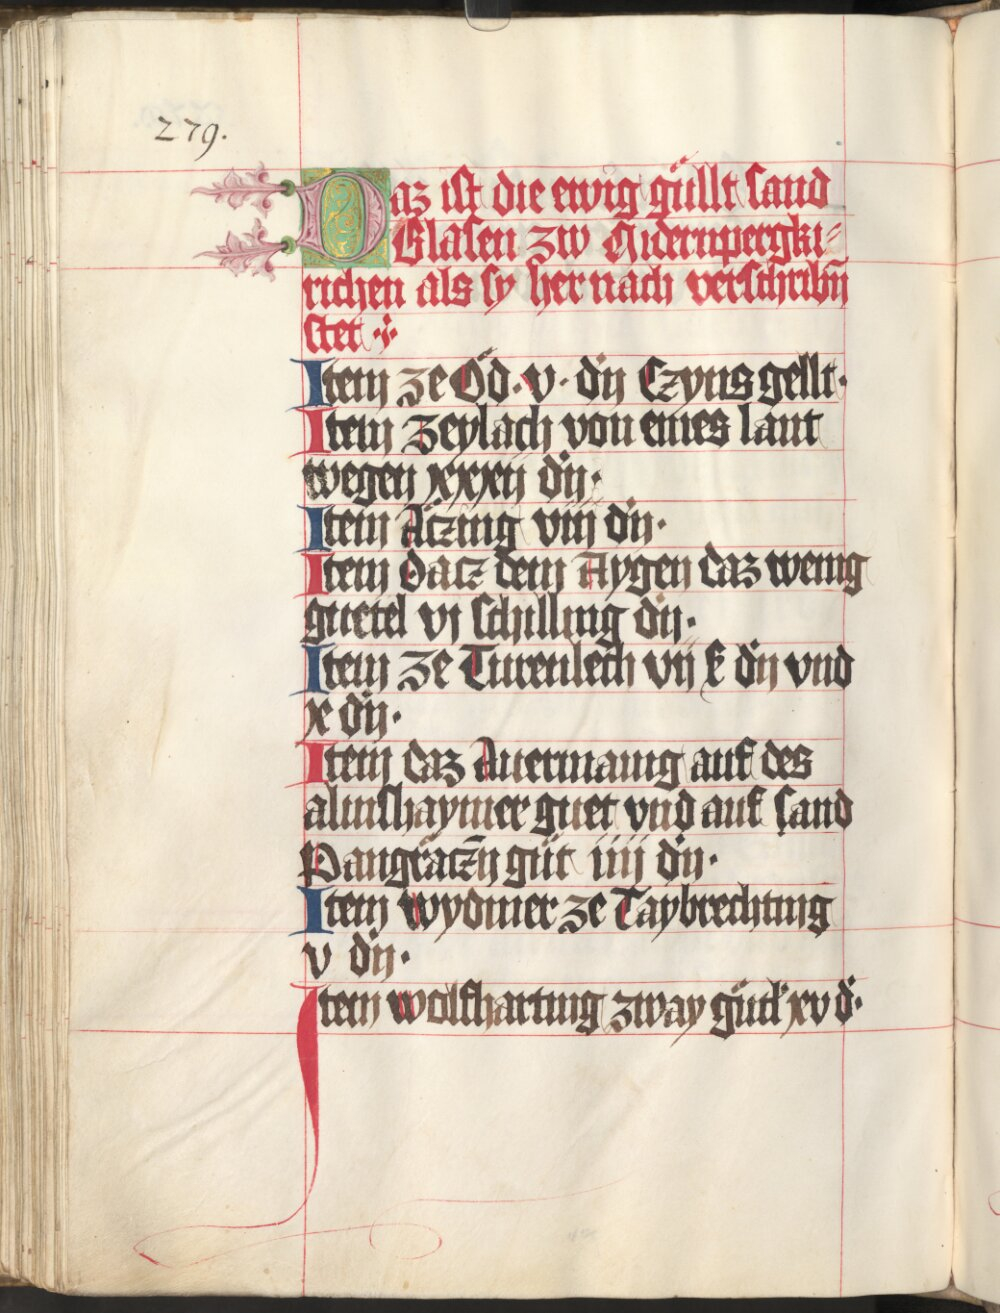 279.
Daz ist die ewig güllt sand
Blasen zw Nidernpergki-
richen als sy her nach verschribn̄
stet
Item ze Öd · v · dn̄ Czyns gellt ·
Item Zeylach von eines lant
wegen xxxij dn̄ ·
Item Aczing viij dn̄ ·
Item Dacz dem Aygen daz wenig
guetel vj schilling dn̄ ·
Item ze Turenlech vij ß dn̄ vnd
x dn̄ ·
Item daz Auermanig auf des
alinshaymer guet vnd auf sand
Pangraczn̄ güt iiij dn̄ ·
Item wydmer ze Taybrechting
v dn̄ ·
Item wolfharting zway gütl xv d ·